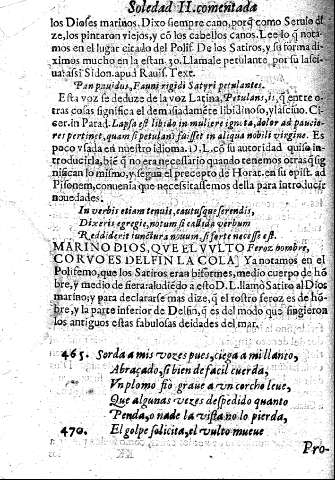 Soledad II. comentada
los Dioses marinos. Dixo siempre cano, porq̃ como Seruio di
ze, los pintaron viejos, y cõ los cabellos canos. Lee lo q̃ nota-
mos en el lugar citado del Polif. De los Satiros, y su forma di-
ximos mucho en la estan. 30. Llamale petulante, por su lasci-
uia: assi Sidon. apud Rauis. Text.
Pan pauidus, Fauni rigidi Satyri petulantes.
Esta voz se deduze de la voz Latina, Petulans, is, q̃ entre o
tras cosas significa el demasiadamẽte libidinoso, y lasciuo. Ci-
cer. in Parad. Lapsa est libido in muliere ignota, dolor ad paucio-
res pertinet, quam si petulans fuisset in aliqua nobili virgine. Es
poco vsada en nuestro idioma. D. L. cõ su autoridad quiso in-
troducirla, biẽ q̃ no era necessario quando tenemos otras q̃ sig
nifican lo mismo, y segun el precepto de Horat. en su epist. ad
Pisonem, conuenia que necessitassemos della para introducir
nouedades.
In verbis etiam tenuis, cautusque serendis,
Dixeris egregie, notum si callida verbum
Reddiderit iunctura nouum, si forte necesse est.
MARINO DIOS, QVE EL VVLTO Feroz hombre,
CORVO ES DELFIN LA COLA. Ya notamos en el
Polifemo, que los Satiros eran biformes, medio cuerpo de hõ
bre, y medio de fiera: aludiẽdo a esto D. L. llamò Satiro al Dios
marino; y para declararse mas dize, q̃ el rostro feroz es de hõ-
bre, y la parte inferior de Delfin, q̃ es del modo que fingieron
los antiguos estas fabulosas deidades del mar.
465. Sorda a mis vozes pues, ciega a mi llanto,
Abraçado, si bien de facil cuerda,
Vn plomo fiò graue a vn corcho leue,
Que algunas vezes despedido quanto
Penda, o nade la vista no lo pierda,
470. El golpe solicita, el vulto mueue
Pro-